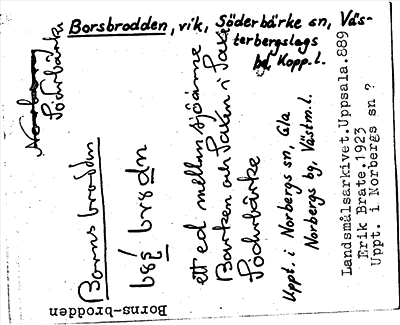 Borsbrodden, vik, Söderbärke sn, Väs-
terbergslags
bg, Kopp.l.
Norberg
Söderbärke
Borns brodden
ett ed mellan sjöarne
Barken och Saxen i
Söderbärke
Uppt. i Norbergs sn, Gla
Norbergs bg, Västm.l.
Landsmålsarkivet.Uppsala.889
Erik Brate.1923
Uppt. i Norbergs sn ?
Borns-brodden